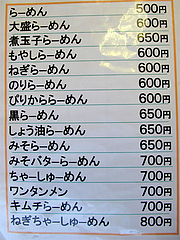 らーめん 500円
大盛らーめん 600円
煮玉子らーめん 650円
もやしらーめん 600円
ねぎらーめん 600円
のりらーめん 600円
ぴりかららーめん 600円
黒らーめん 650円
しょう油らーめん 650円
みそらーめん 650円
みそバターらーめん 700円
ちゃーしゅーめん 700円
ワンタンメン 700円
キムチらーめん 700円
ねぎちゃーしゅーめん 800円